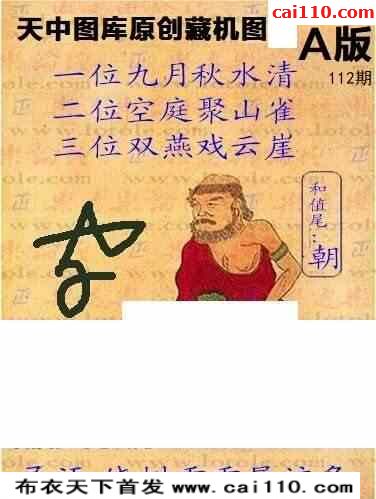 cai110.com
天中图库原创藏机图
A版
112期
一位九月秋水清
二位空庭聚山雀
三位双燕戏云崖
和值尾：朝
布衣天下首发 www.cai110.com